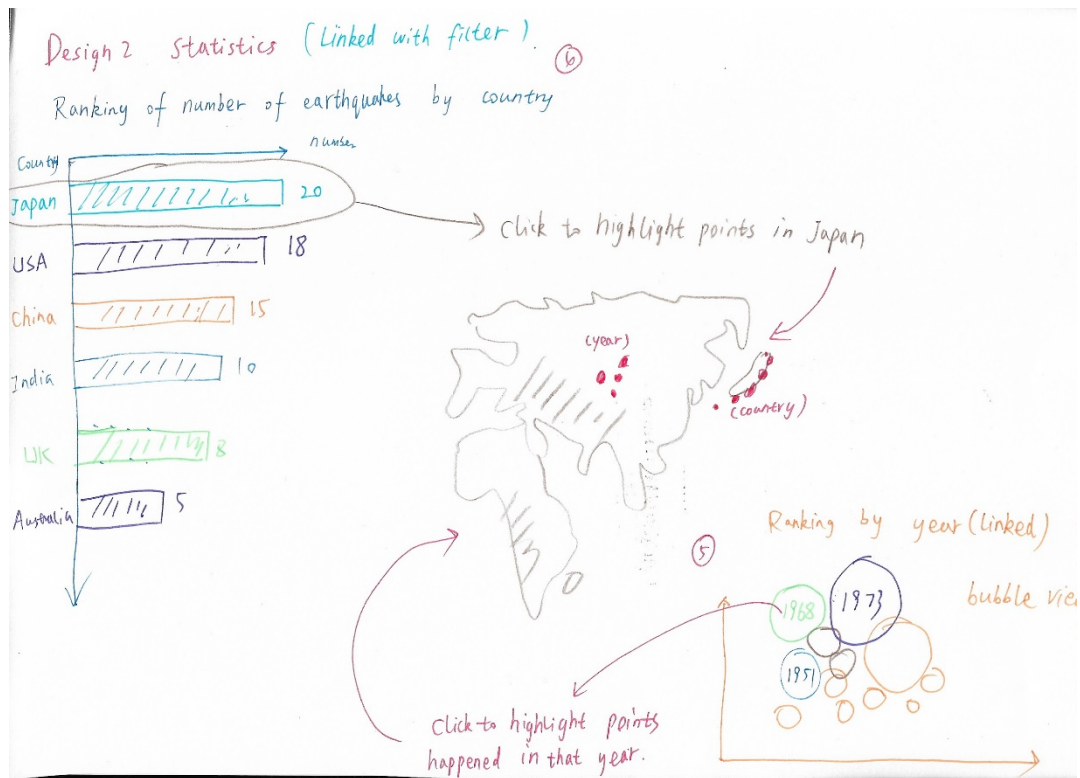 Design 2 Statistics (Linked with filter).
6
Ranking of number of earthquakes by country
Country
number
Japan 20
USA 18
China 15
India 10
UK 8
Australia 5
Click to highlight points in Japan
(year)
(country)
5
Ranking by year (linked)
bubble view
1968
1973
1951
Click to highlight points
happened in that year.